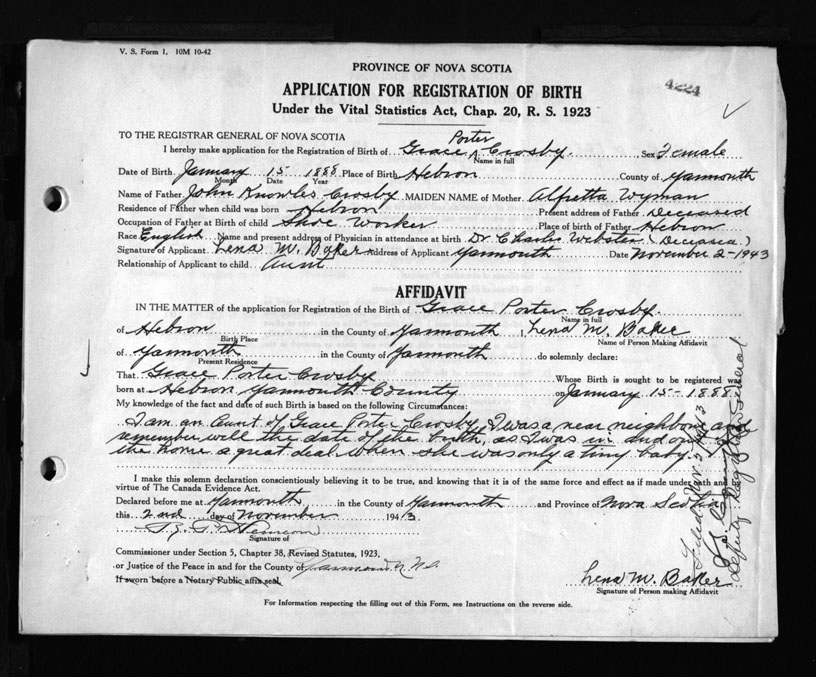 V. S. Form 1. 10M 10-42
4224
PROVINCE OF NOVA SCOTIA
APPLICATION FOR REGISTRATION OF BIRTH
Under the Vital Statistics Act, Chap. 20, R. S. 1923
TO THE REGISTRAR GENERAL OF NOVA SCOTIA
I hereby make application for the Registration of Birth of Grace Porter Crosby. Sex Female
Name in full
Date of Birth January 15 1888 Place of Birth Hebron County of Yarmouth
Month Date Year
Name of Father John Knowles Crosby MAIDEN NAME of Mother Alfretta Wyman
Residence of Father when child was born Hebron Present address of Father Deceased
Occupation of Father at Birth of child Shoe Worker Place of birth of Father Hebron
Race English Name and present address of Physician in attendance at birth Dr. Charles Webster (Deceased)
Signature of Applicant Lena M. Baker Address of Applicant Yarmouth Date November 2-1943
Relationship of Applicant to child Aunt
AFFIDAVIT
IN THE MATTER of the application for Registration of the Birth of Grace Porter Crosby.
Name in full
of Hebron in the County of Yarmouth I, Lena M. Baker
Birth Place Name of Person Making Affidavit
of Yarmouth in the County of Yarmouth do solemnly declare:
Present Residence
That Grace Porter Crosby Whose Birth is sought to be registered was
born at Hebron Yarmouth County on January 15-1888
My knowledge of the fact and date of such Birth is based on the following Circumstances:
I am an Aunt of Grace Porter Crosby, I was a near neighbour and
remember well the date of the birth, as I was in and out
the home a great deal when she was only a tiny baby.
I make this solemn declaration conscientiously believing it to be true, and knowing that it is of the same force and effect as if made under oath and by
virtue of The Canada Evidence Act.
Declared before me at Yarmouth in the County of Yarmouth and Province of Nova Scotia
this 2nd day of November 1943
Signature of
Commissioner under Section 5, Chapter 38, Revised Statutes, 1923,
or Justice of the Peace in and for the County of Yarmouth N.S.
If sworn before a Notary Public affix seal.
Lena M. Baker
Signature of Person making Affidavit
For Information respecting the filling out of this Form, see Instructions on the reverse side.
Filed Nov. 3
Deputy Registrar General